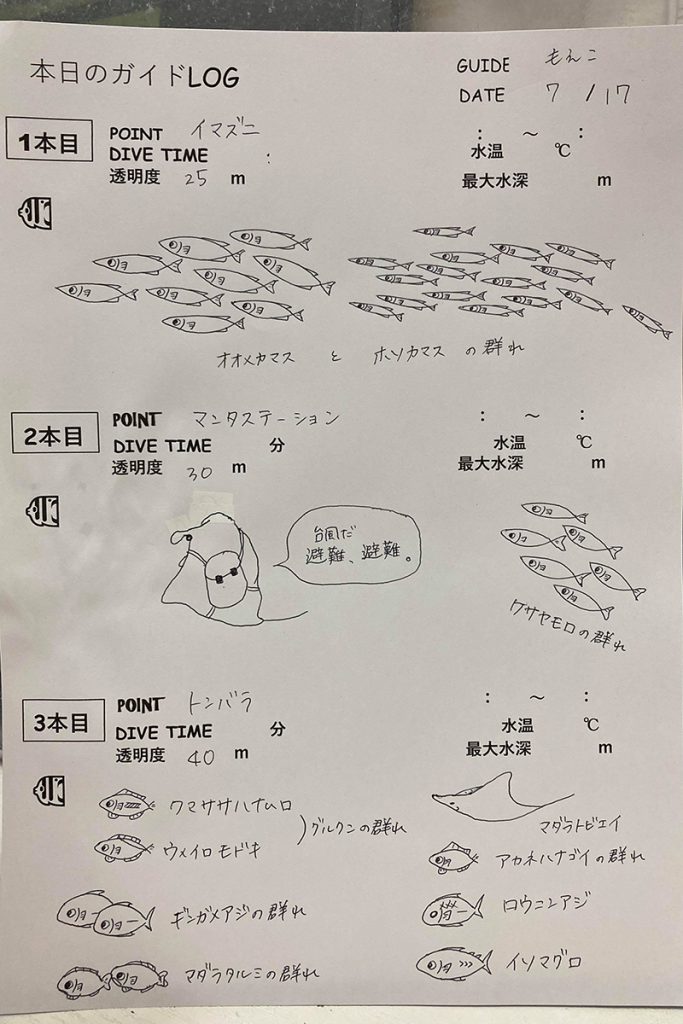 本日のガイドLOG
GUIDE もえこ
DATE 7 / 17
1本目
POINT イマズニ
DIVE TIME :
透明度 25 m
: ~ :
水温 ℃
最大水深 m
オオメカマス と ホソカマス の群れ
2本目
POINT マンタステーション
DIVE TIME 分
透明度 30 m
: ~ :
水温 ℃
最大水深 m
台風だ
避難、避難。
クサヤモロの群れ
3本目
POINT トンバラ
DIVE TIME 分
透明度 40 m
: ~ :
水温 ℃
最大水深 m
クマササハナムロ
ウメイロモドキ
グルクンの群れ
ギンガメアジの群れ
マダラタルミの群れ
マダラトビエイ
アカネハナゴイの群れ
ロウニンアジ
イソマグロ